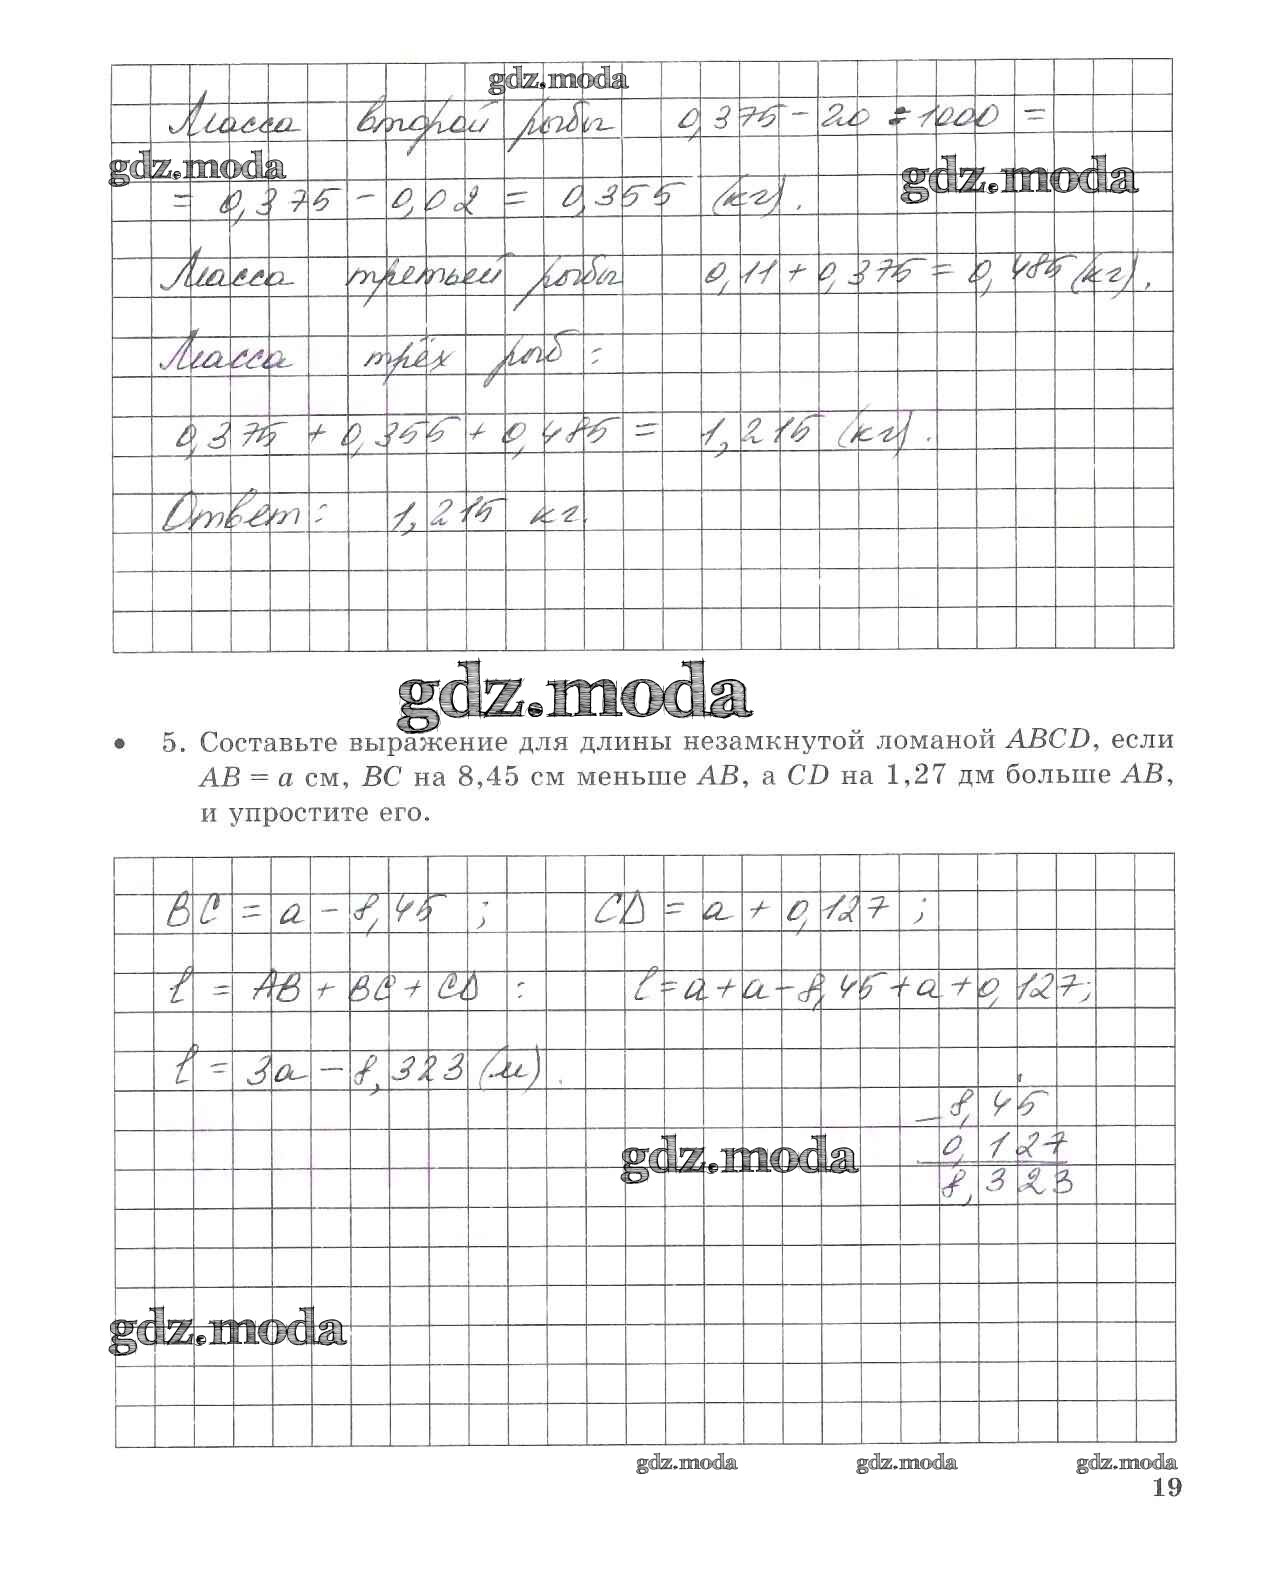 gdz.moda
Масса второй рыбы 0,375 - 20 : 1000 =
gdz.moda gdz.moda
= 0,375 - 0,02 = 0,355 (кг).
Масса третьей рыбы 0,11 + 0,375 = 0,485 (кг).
Масса трёх рыб:
0,375 + 0,355 + 0,485 = 1,215 (кг).
Ответ: 1,215 кг.
gdz.moda
• 5. Составьте выражение для длины незамкнутой ломаной ABCD, если
AB = a см, BC на 8,45 см меньше AB, а CD на 1,27 дм больше AB,
и упростите его.
BC = a - 8,45 ; CD = a + 0,127 ;
l = AB + BC + CD : l = a + a - 8,45 + a + 0,127;
l = 3a - 8,323 (м).
- 8,45
0,127
gdz.moda
8,323
gdz.moda
gdz.moda gdz.moda gdz.moda
19